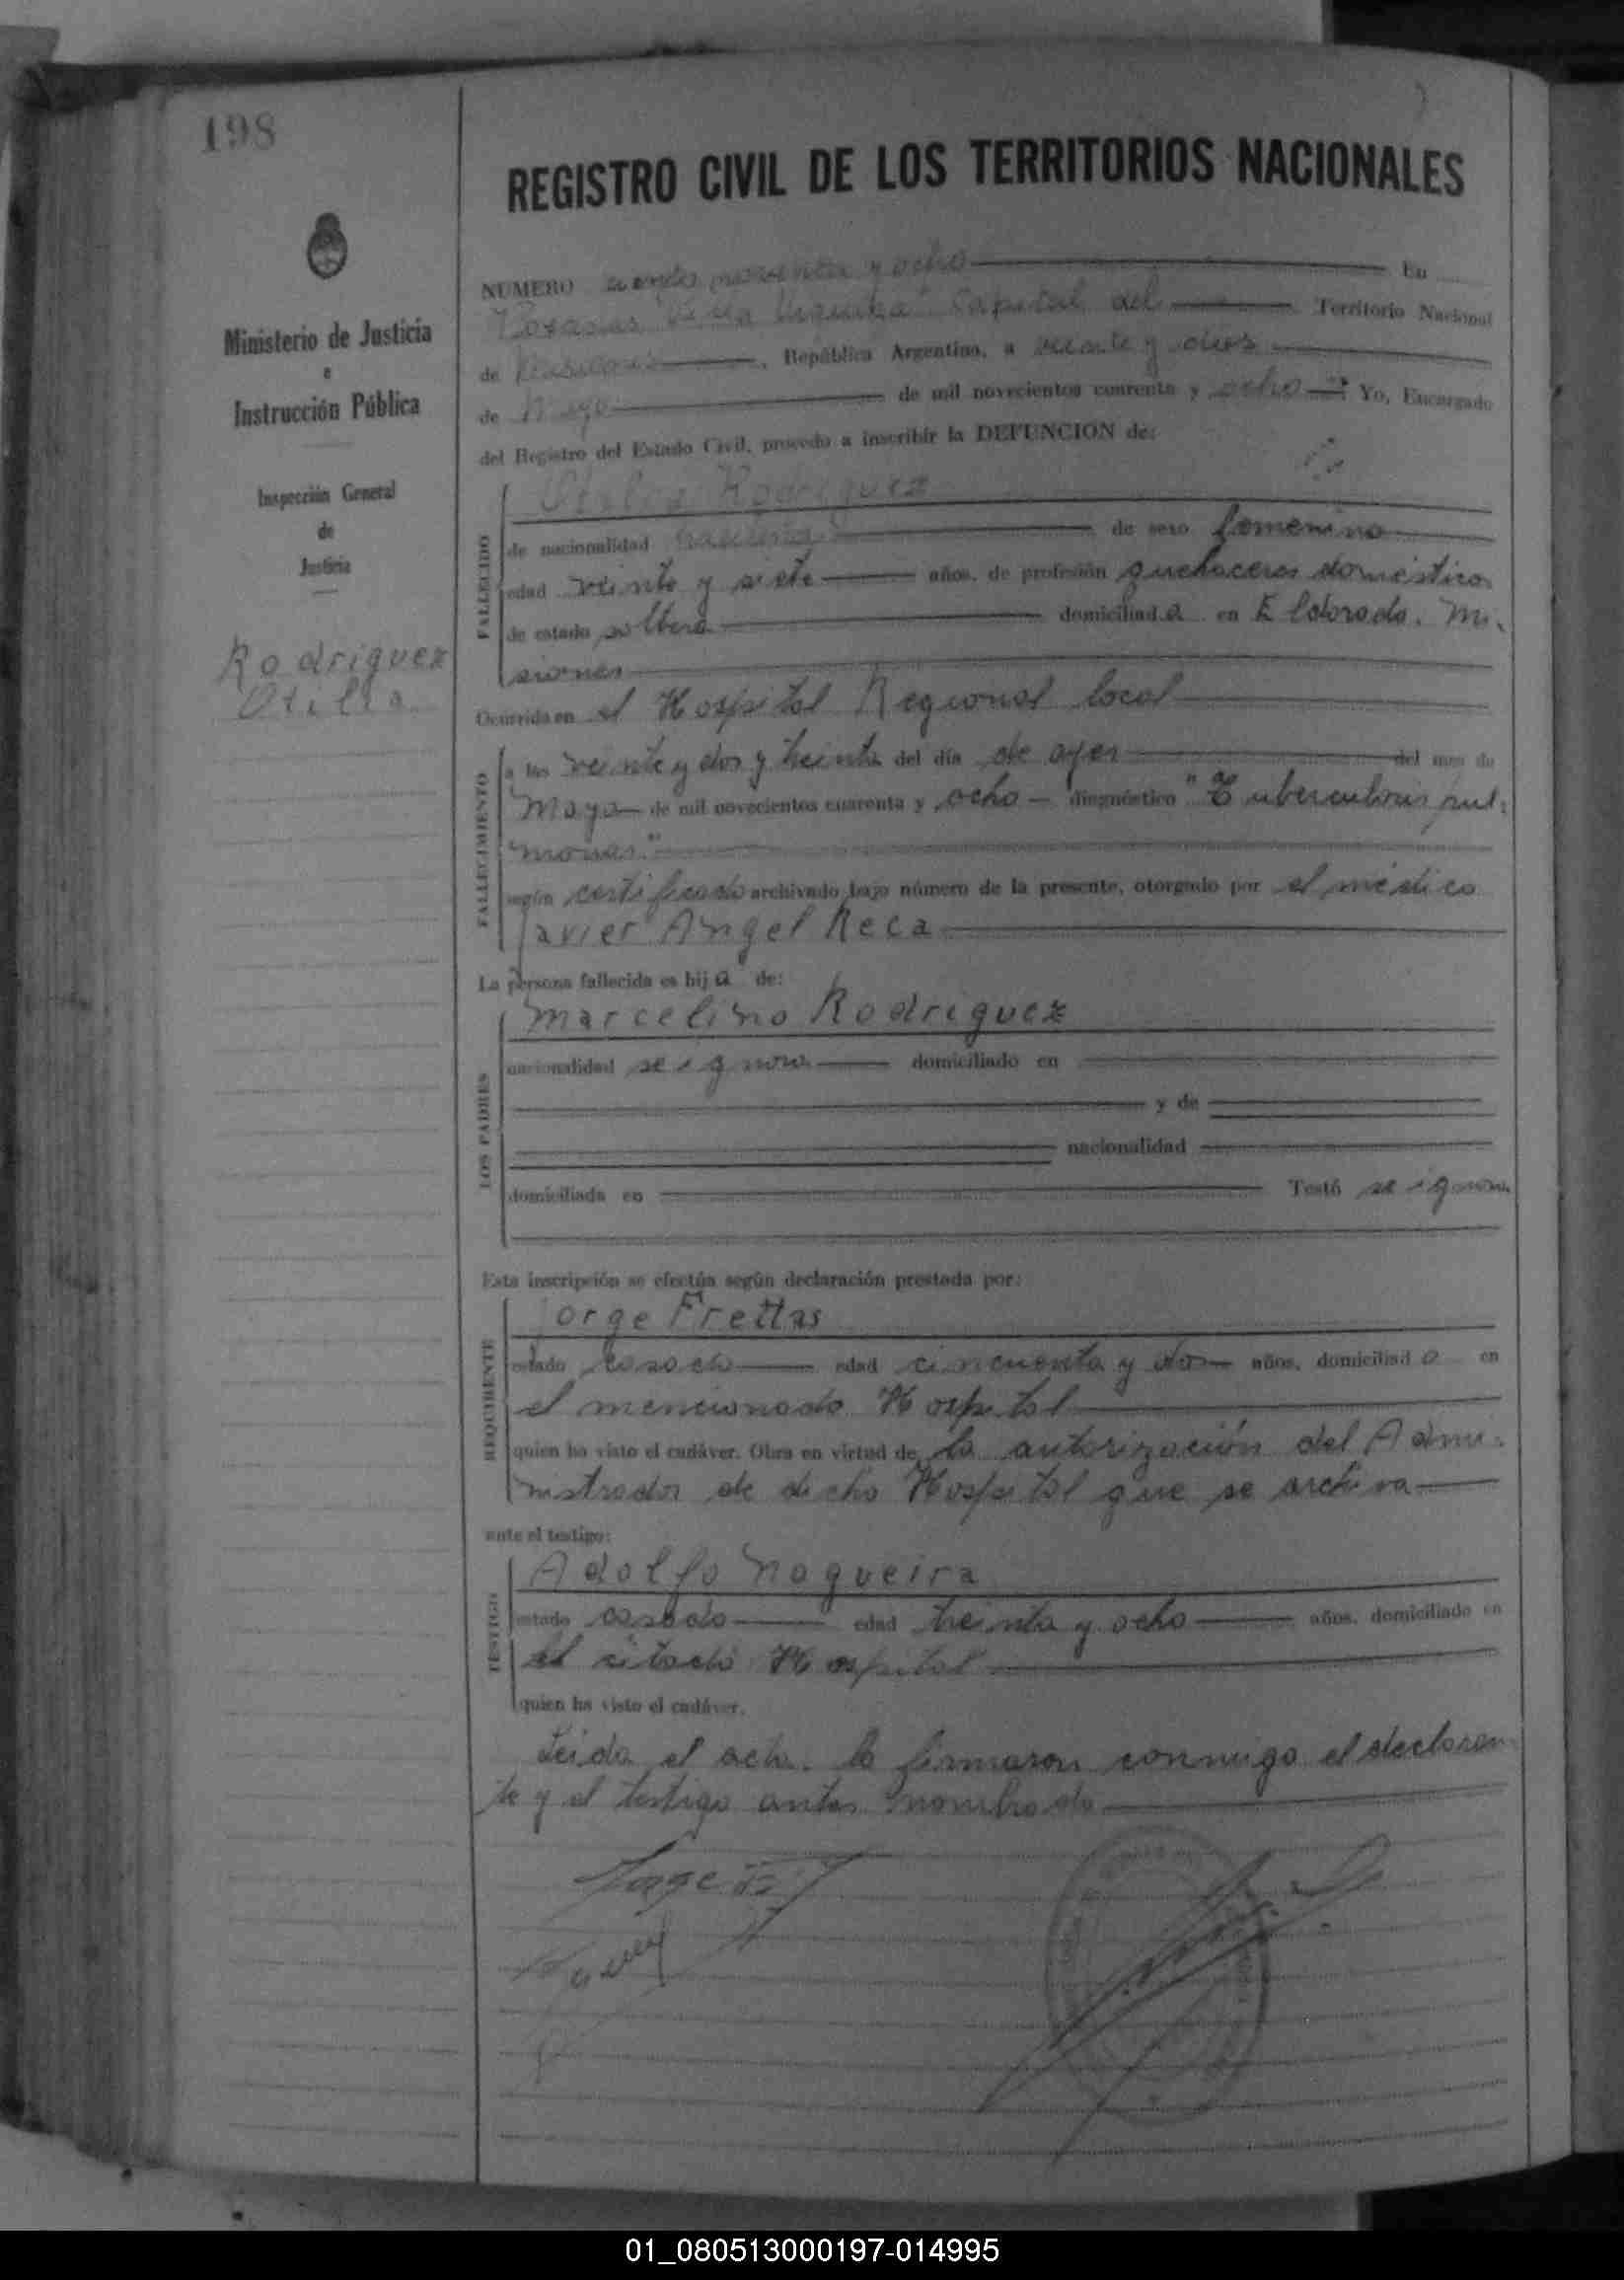 198
REGISTRO CIVIL DE LOS TERRITORIOS NACIONALES
Ministerio de Justicia
e
Instrucción Pública
Inspección General
de
Justicia
Rodriguez
Otilia
NUMERO ciento noventa y ocho En
Posadas "Villa Urquiza" Capital del Territorio Nacional
de Misiones, República Argentina, a veinte y dos
de Mayo de mil novecientos cuarenta y ocho Yo, Encargado
del Registro del Estado Civil, procedo a inscribir la DEFUNCION de:
FALLECIDO
Otilia Rodriguez
de nacionalidad de sexo femenino
edad veinte y siete años, de profesión quehaceres domésticos
de estado soltera domiciliada en Eldorado. Mi-
siones
Ocurrida en el Hospital Regional local
FALLECIMIENTO
a las veinte y dos y treinta del día de ayer del mes de
Mayo de mil novecientos cuarenta y ocho diagnóstico "Tuberculosis pul-
monar"
según certificado archivado bajo número de la presente, otorgado por el médico
Javier Angel Reca
La persona fallecida es hija de:
LOS PADRES
Marcelino Rodriguez
nacionalidad se ignora domiciliado en
y de
nacionalidad
domiciliada en Testó se ignora
Esta inscripción se efectúa según declaración prestada por:
REQUIRENTE
Jorge Freitas
estado casado edad cincuenta y dos años, domiciliado en
el mencionado Hospital
quien ha visto el cadáver. Obra en virtud de la autorización del Admi-
nistrador de dicho Hospital que se archiva
ante el testigo:
TESTIGO
Adolfo Nogueira
estado casado edad treinta y ocho años, domiciliado en
el citado Hospital
quien ha visto el cadáver.
Leida el acta. la firmaron conmigo el declaran-
te y el testigo antes nombrado
Jorge
01_080513000197-014995